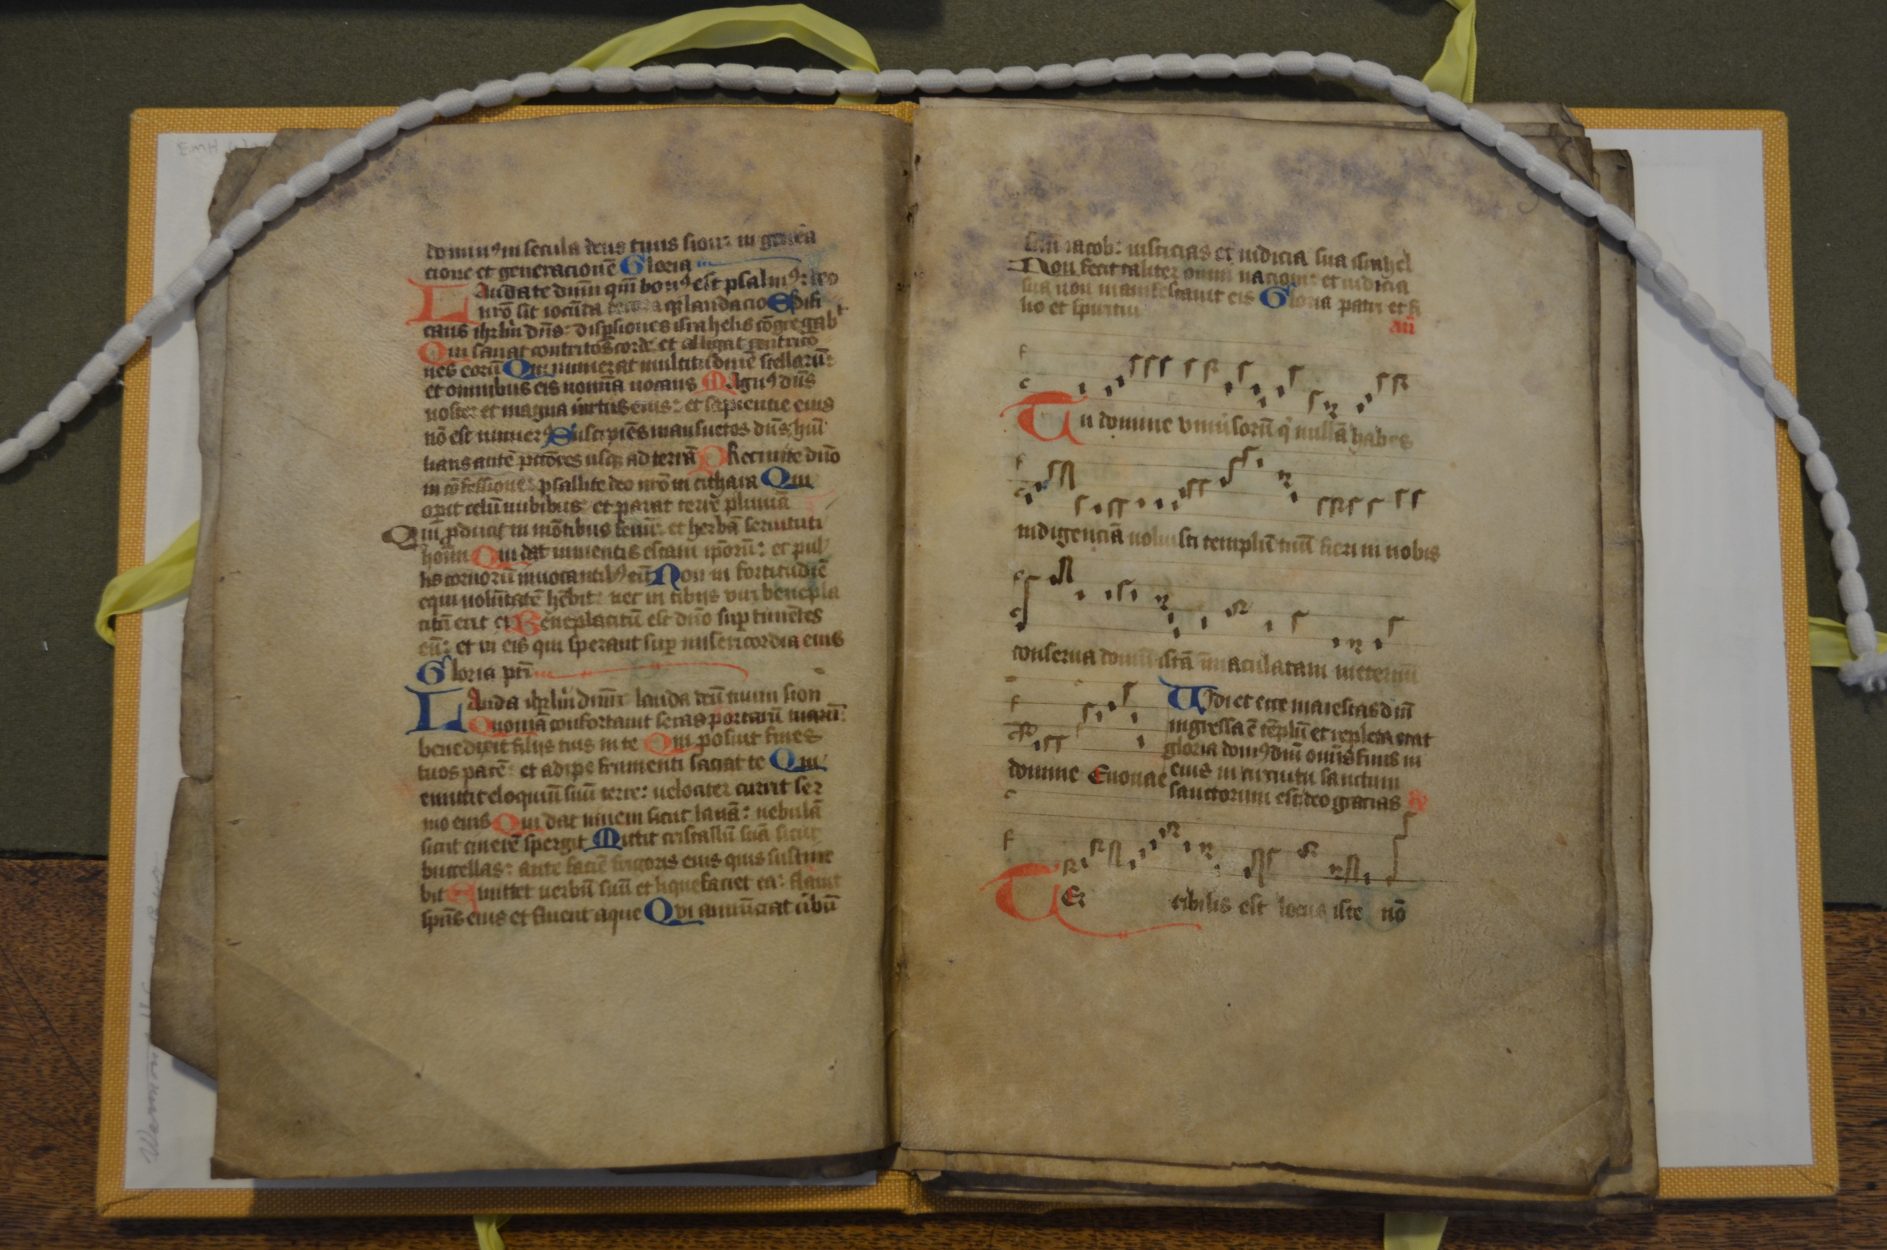 dominꝰ in secula deus tuus sion: in genera
cione et generacionē Gloria
Laudate dn̄m qm̄ bonꝰ est psalmꝰ: deo
nr̄o sit iocūda laudacio Edifi
cans ihrl̄m dn̄s: dispsiones israhelis cōgregab
Qui sanat contritos corde et alligat contricio
nes eorū Qui numerat multitudinē stellarū:
et omnibus eis nomīa uocans Magnꝰ dn̄s
noster et magna uirtus eius: et sapiencie eius
nō est numerꝰ Suscipiēs mansuetos dn̄s: hūi
lians autē pctōres usqꝫ ad terrā Precinite dn̄o
in cōfessione: psallite deo nr̄o in cithara Qui
opit celū nubibus: et parat terre pluuiā
Qui pducit in mōtibus fenū: et herbā seruituti
hoīm Qui dat iumentis escam ipōrū: et pul
lis coruorū inuocantibꝰ eū Non in fortitudīe
equi volūtatē hēbit: nec in tibijs viri benepla
citū erit ei Beneplacitū est dn̄o sup timētes
eū: et in eis qui sperant sup misericordia eius
Gloria pri
Lauda ihrl̄m dn̄m: lauda deū tuum sion
Quoniā confortauit seras portarū tuarū:
benedixit filijs tuis in te Qui posuit fines
tuos pacē: et adipe frumenti saciat te Qui
emittit eloquiū suū terre: uelociter currit ser
mo eius Qui dat niuem sicut lanā: nebulā
sicut cinerē spergit Mittit cristallū suā sicut
bucellas: ante faciē frigoris eius quis sustine
bit Emittet uerbū suū et liquefaciet ea: flauit
spūs eius et fluent aque Qui annūciat uerbū
suū iacob: iusticias et iudicia sua israhel
Non fecit taliter omni nacioni: et iudicia
sua non manifestauit eis Gloria patri et f
lio et spiritui
an̄
Tu domine vniūsorū q nullā habes
indigenciā uoluisti templū tuū fieri in nobis
conserua domū istā īmaculatam in eternū
domine Euouae
Vidi et ecce maiestas dn̄i
ingressa ē tēplū et repleta erat
gloria domꝰ dn̄i omīs finis in
eius in circuitu sanctum
sanctorum est deo gracias
TEr ribilis est locus iste nō